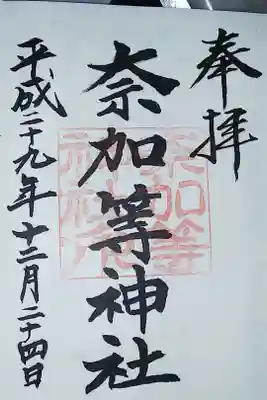 奉拝
奈加等神社
平成二十九年十二月二十四日